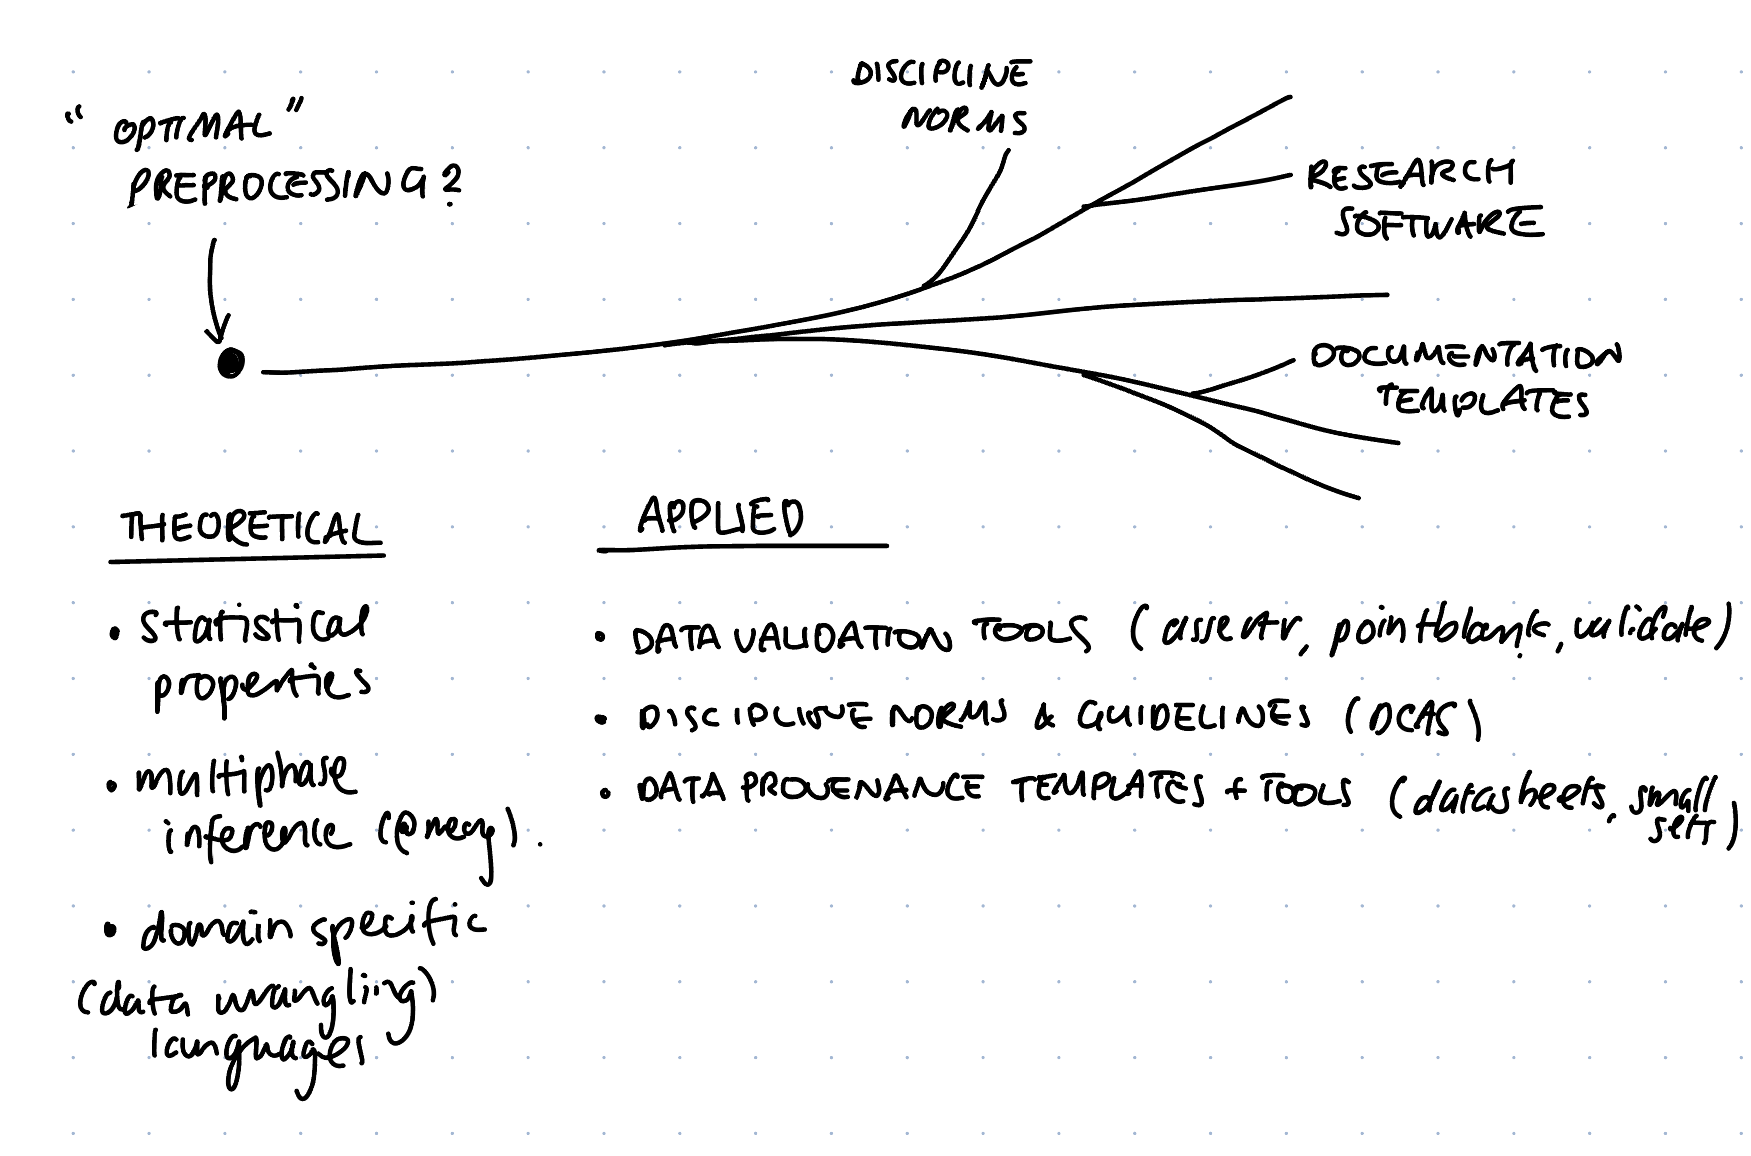 "OPTIMAL"
PREPROCESSING?
DISCIPLINE
NORMS
RESEARCH
SOFTWARE
DOCUMENTATION
TEMPLATES
THEORETICAL
• statistical
properties
• multiphase
inference (@meng).
• domain specific
(data wrangling)
languages
APPLIED
• DATA VALIDATION TOOLS (assertr, pointblank, validate)
• DISCIPLINE NORMS & GUIDELINES (DCAS)
• DATA PROVENANCE TEMPLATES + TOOLS (datasheets, small
sets)